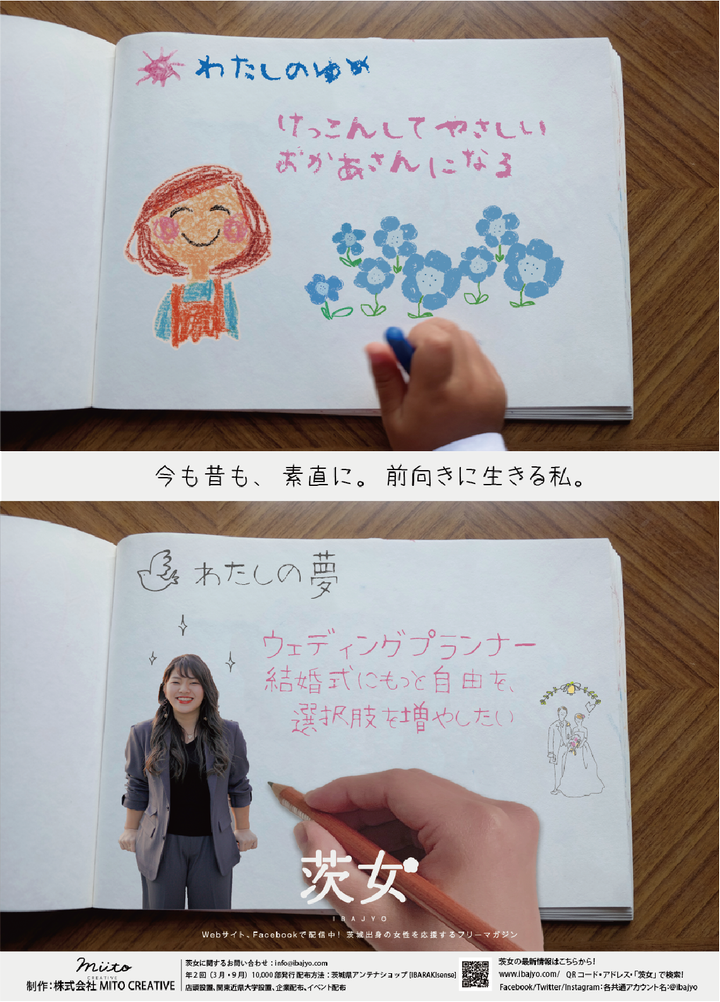 わたしのゆめ
けっこんして やさしい
おかあさんになる
今も昔も、素直に。前向きに生きる私。
わたしの夢
ウェディングプランナー
結婚式にもっと自由を、
選択肢を増やしたい
茨女
IBAJYO
Webサイト、Facebookで配信中！茨城出身の女性を応援するフリーマガジン
miito
CREATIVE
制作：株式会社 MITO CREATIVE
茨女に関するお問い合わせ：info@ibajyo.com
年2回（3月・9月）10,000部発行 配布方法：茨城県アンテナショップ [IBARAKIsense]
店頭設置、関東近県大学設置、企業配布、イベント配布
茨女の最新情報はこちらから！
www.ibajyo.com/ QRコード・アドレス・「茨女」で検索！
Facebook/Twitter/Instagram：各共通アカウント名：@ibajyo